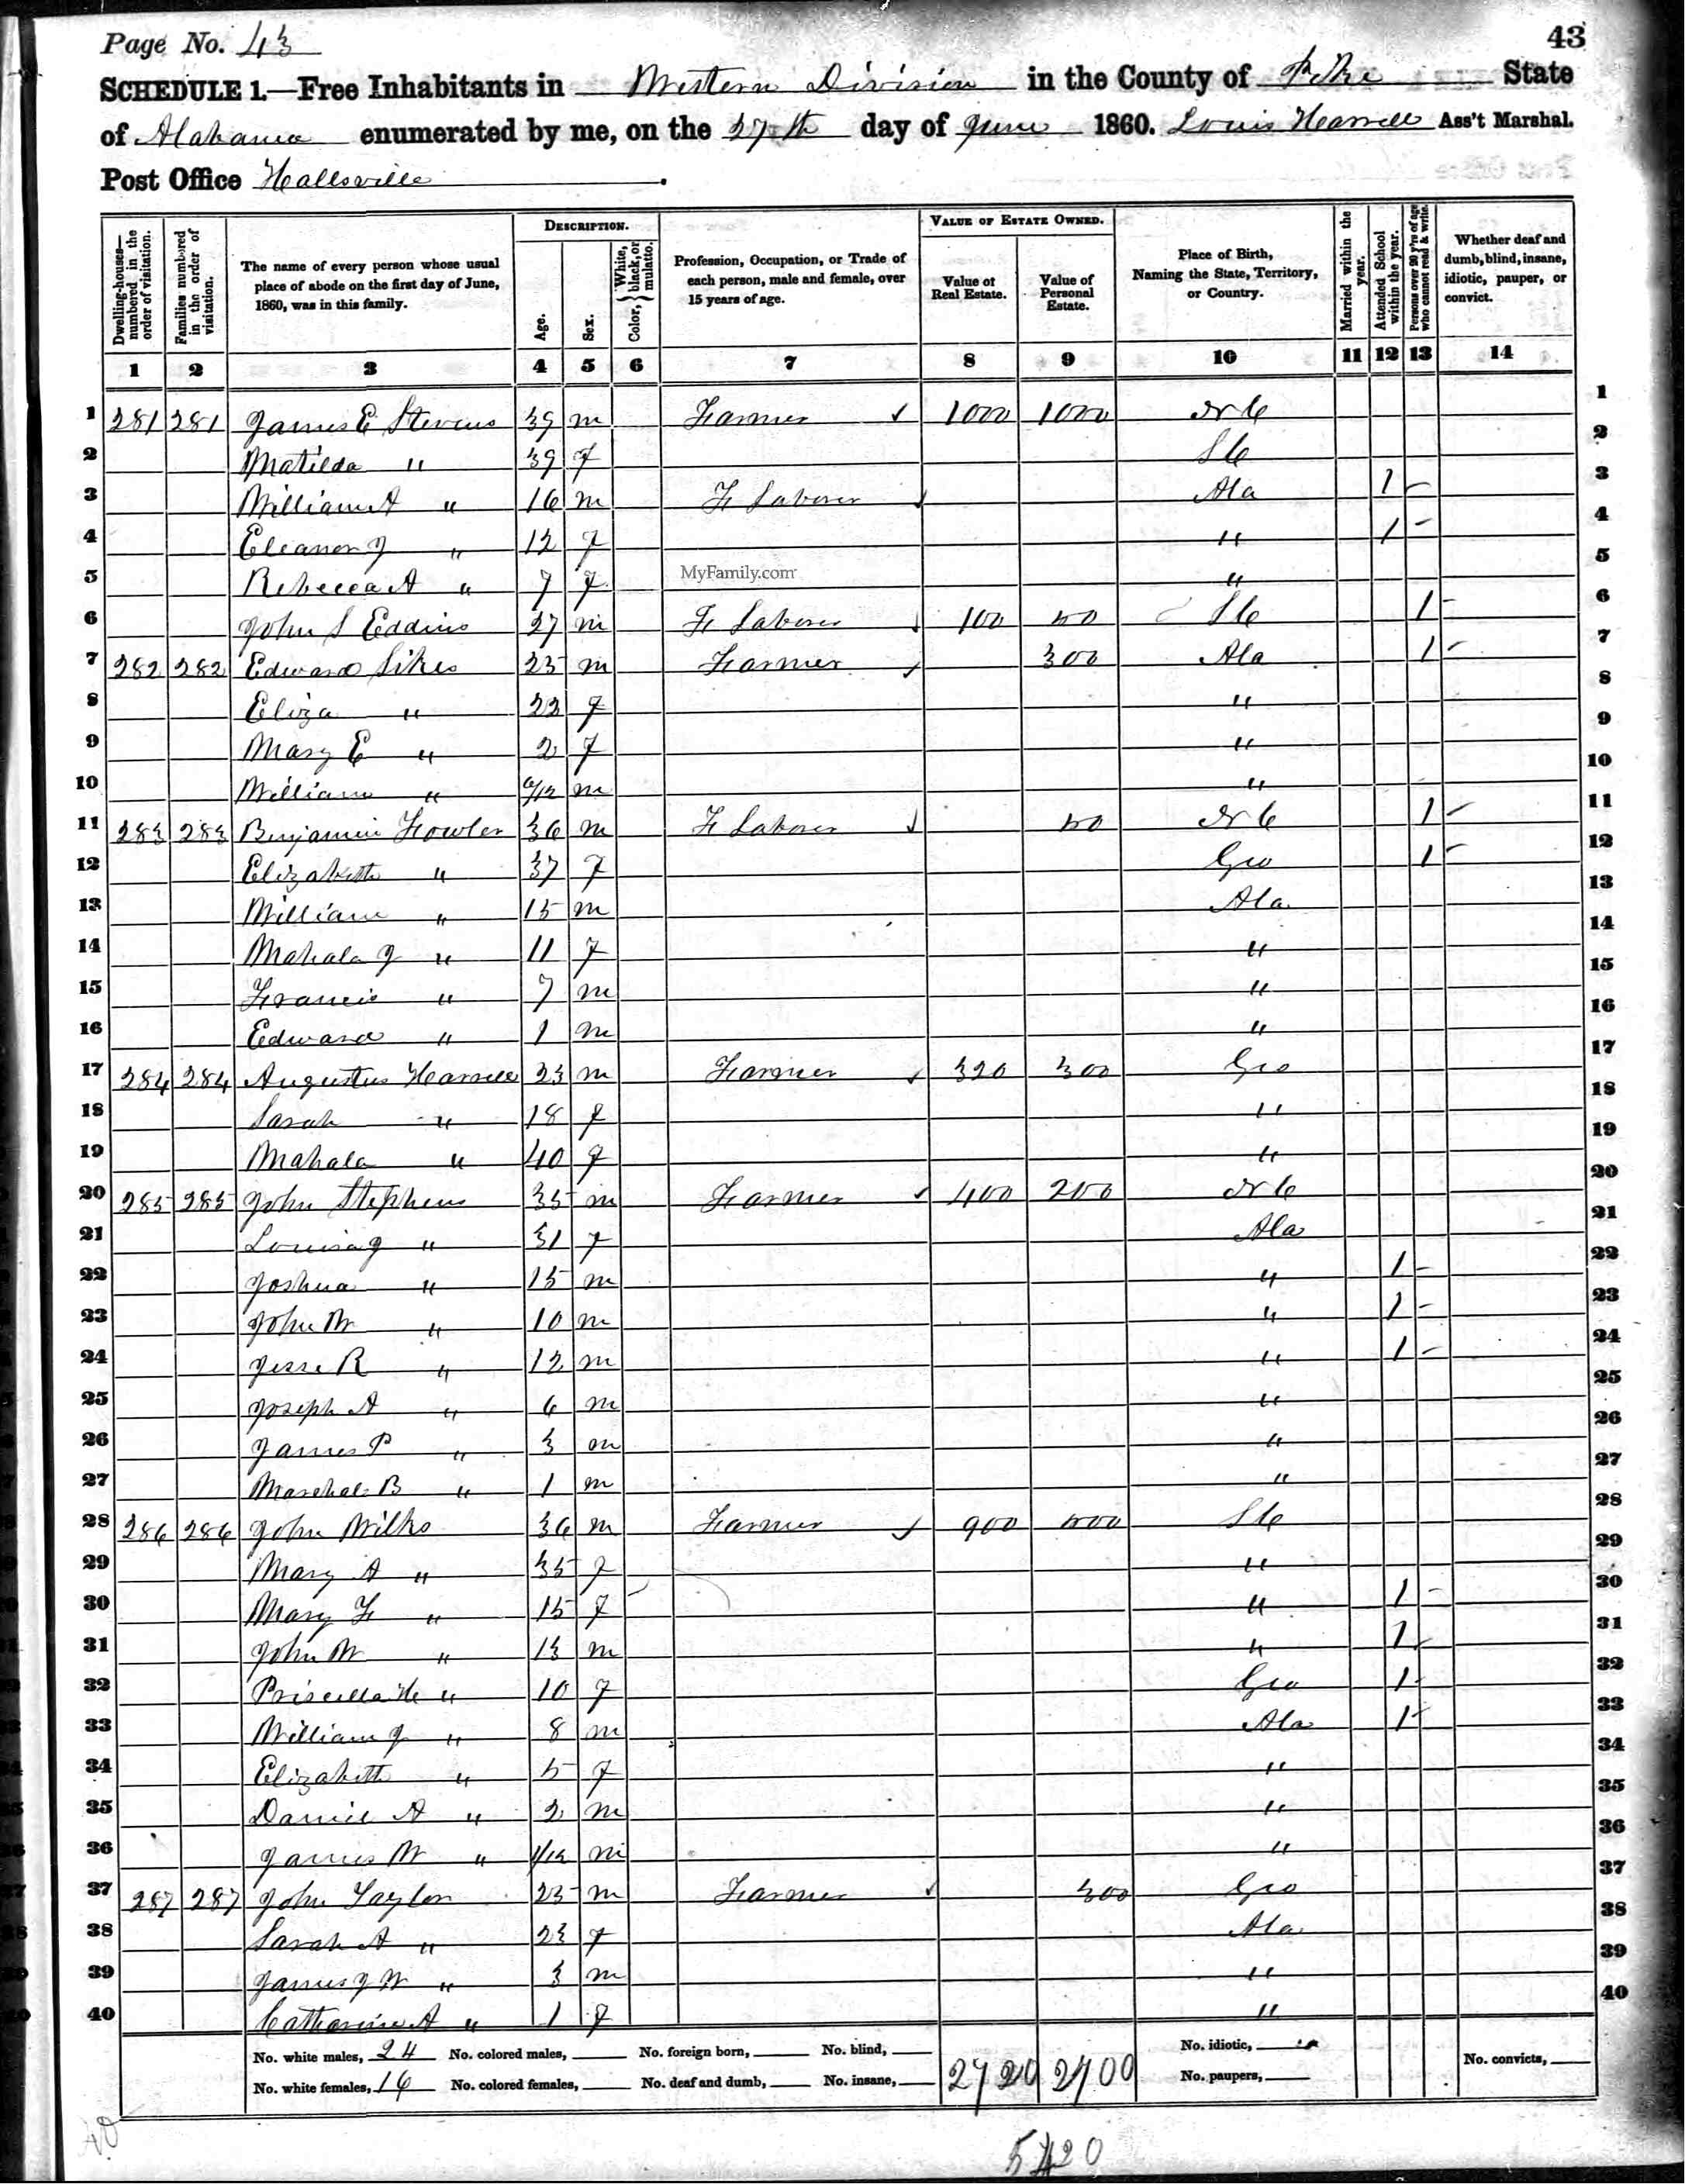 Page No. 43
43
SCHEDULE 1.—Free Inhabitants in Western Division in the County of Pike State
of Alabama enumerated by me, on the 27th day of June 1860. Louis Harrell Ass't Marshal.
Post Office Hallsville.
Dwelling-houses—numbered in the order of visitation.
Families numbered in the order of visitation.
The name of every person whose usual place of abode on the first day of June, 1860, was in this family.
DESCRIPTION.
Age.
Sex.
Color, { White, black, or mulatto.
Profession, Occupation, or Trade of each person, male and female, over 15 years of age.
VALUE OF ESTATE OWNED.
Value of Real Estate.
Value of Personal Estate.
Place of Birth, Naming the State, Territory, or Country.
Married within the year.
Attended School within the year.
Persons over 20 y'rs of age who cannot read & write.
Whether deaf and dumb, blind, insane, idiotic, pauper, or convict.
1 2 3 4 5 6 7 8 9 10 11 12 13 14
1 281 281 James E Stevens 39 m Farmer ✓ 1000 1000 N C 1
2 Matilda " 39 f S C 2
3 William A " 16 m F Laborer ✓ Ala 1 - 3
4 Eleanor J " 12 f " 1 - 4
5 Rebecca A " 7 f MyFamily.com " 5
6 John S Eddins 27 m F Laborer ✓ 100 50 S C 1 - 6
7 282 282 Edward Sikes 25 m Farmer ✓ 300 Ala 1 - 7
8 Eliza " 22 f " 8
9 Mary E " 2 f " 9
10 William " 6/12 m " 10
11 283 283 Benjamin Fowler 36 m F Laborer ✓ 50 N C 1 - 11
12 Elizabeth " 37 f Geo 1 - 12
13 William " 15 m Ala 13
14 Mahala J " 11 f " 14
15 Francis " 7 m " 15
16 Edward " 1 m " 16
17 284 284 Augustus Harrell 23 m Farmer ✓ 320 300 Geo 17
18 Sarah " 18 f " 18
19 Mahala " 40 f " 19
20 285 285 John Stephens 35 m Farmer ✓ 400 200 N C 20
21 Louisa J " 31 f Ala 21
22 Joshua " 15 m " 1 - 22
23 John W " 10 m " 1 - 23
24 Jesse R " 12 m " 1 - 24
25 Joseph A " 6 m " 25
26 James P " 3 m " 26
27 Marshal B " 1 m " 27
28 286 286 John Wilks 36 m Farmer ✓ 900 500 S C 28
29 Mary A " 35 f " 29
30 Mary F " 15 f " 1 - 30
31 John W " 13 m " 1 - 31
32 Priscilla H " 10 f Geo 1 - 32
33 William J " 8 m Ala 1 - 33
34 Elizabeth " 5 f " 34
35 Daniel A " 2 m " 35
36 James W " 1/12 m " 36
37 287 287 John Taylor 25 m Farmer ✓ 300 Geo 37
38 Sarah A " 23 f Ala 38
39 James J W " 3 m " 39
40 Catharine A " 1 f " 40
No. white males, 24 No. colored males, No. foreign born, No. blind, 2720 2700 No. idiotic, No. convicts,
No. white females, 16 No. colored females, No. deaf and dumb, No. insane, No. paupers,
40
5420